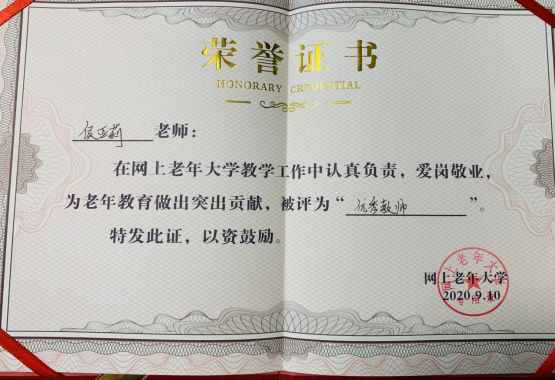 荣誉证书
HONORARY CREDENTIAL
侯亚莉 老师：
在网上老年大学教学工作中认真负责，爱岗敬业，
为老年教育做出突出贡献，被评为“优秀教师”。
特发此证，以资鼓励。
网上老年大学
2020.9.10
网上老年大学
专用章